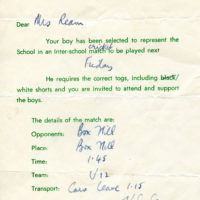 Dear Mrs Ream
Your boy has been selected to represent the
School in an inter-school cricket match to be played next
Friday
He requires the correct togs, including black/
white shorts and you are invited to attend and support
the boys.
The details of the match are:
Opponents: Box Hill
Place: Box Hill
Time: 1.45
Team: U12
Transport: Cars leave 1.15